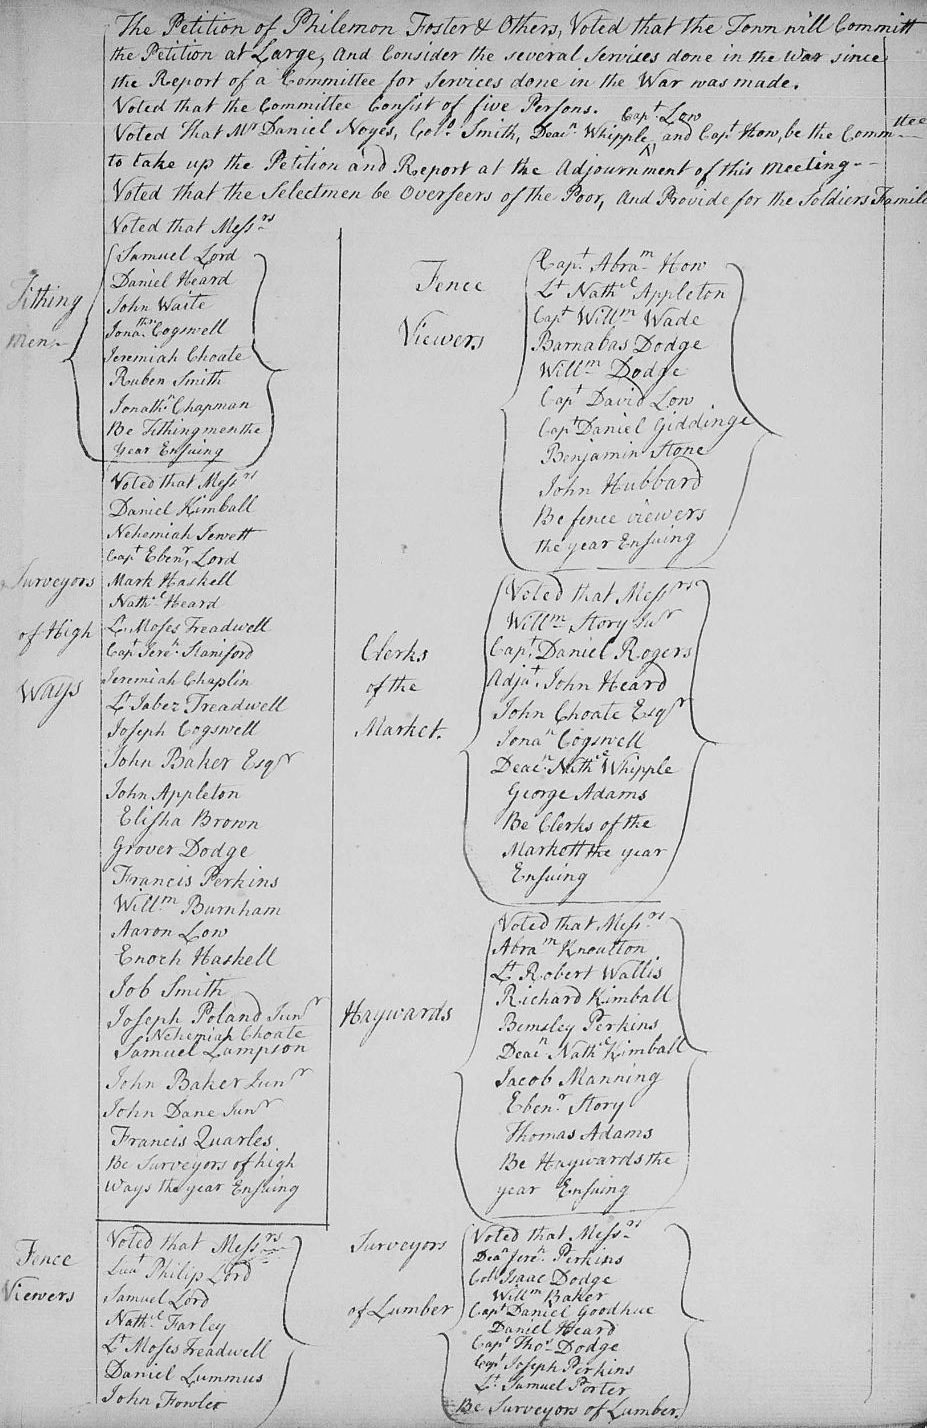 The Petition of Philemon Foster & Others, Voted that the Town will Committ
the Petition at Large, and Consider the several Services done in the War since
the Report of a Committee for Services done in the War was made.
Voted that the Committee Consist of five Persons.
Voted That Mr Daniel Noyes, Colo Smith, Deacn Whipple, Capt Low and Capt How, be the Committee
to take up the Petition and Report at the Adjournment of this Meeting--
Voted that the Selectmen be Overseers of the Poor, and Provide for the Soldiers Famili
Tithing
men
Voted that Messrs
Samuel Lord
Daniel Heard
John Waite
Jonathn Cogswell
Jeremiah Choate
Ruben Smith
Jonathn Chapman
Be Tithingmen the
year Ensuing
Surveyors
of High
Ways
Voted that Messrs
Daniel Kimball
Nehemiah Jewett
Capt Ebenr Lord
Mark Haskell
Nathel Heard
Lt Moses Treadwell
Capt Jereh Staniford
Jeremiah Chaplin
Lt Jabez Treadwell
Joseph Cogswell
John Baker Esqr
John Appleton
Elisha Brown
Grover Dodge
Francis Perkins
Willm Burnham
Aaron Low
Enoch Haskell
Job Smith
Joseph Poland Junr
Nehemiah Choate
Samuel Lampson
John Baker Junr
John Dane Junr
Francis Quarles
Be Surveyors of high
Ways the year Ensuing
Fence
Viewers
Voted that Messrs
Lieut Philip Lord
Samuel Lord
Nathel Farley
Lt Moses Treadwell
Daniel Lummus
John Fowler
Fence
Viewers
Capt Abram How
Lt Nathel Appleton
Capt Willm Wade
Barnabas Dodge
Willm Dodge
Capt David Low
Capt Daniel Giddinge
Benjamin Stone
John Hubbard
Be fence viewers
the year Ensuing
Clerks
of the
Market.
Voted that Messrs
Willm Story Junr
Capt Daniel Rogers
Adjat. John Heard
John Choate Esqr
Jonan Cogswell
Deacn Nathel Whipple
George Adams
Be Clerks of the
Markett the year
Ensuing
Haywards
Voted that Messrs
Abram Knoulton
Lt Robert Wallis
Richard Kimball
Bemsley Perkins
Deacn Nathel Kimball
Jacob Manning
Ebenr Story
Thomas Adams
Be Haywards the
year Ensuing
Surveyors
of Lumber
Voted that Messrs
Dean Jereh Perkins
Colo Isaac Dodge
Willm Baker
Capt Daniel Goodhue
Daniel Heard
Capt Thos Dodge
Capt Joseph Perkins
Lt Samuel Porter
Be Surveyors of Lumber.